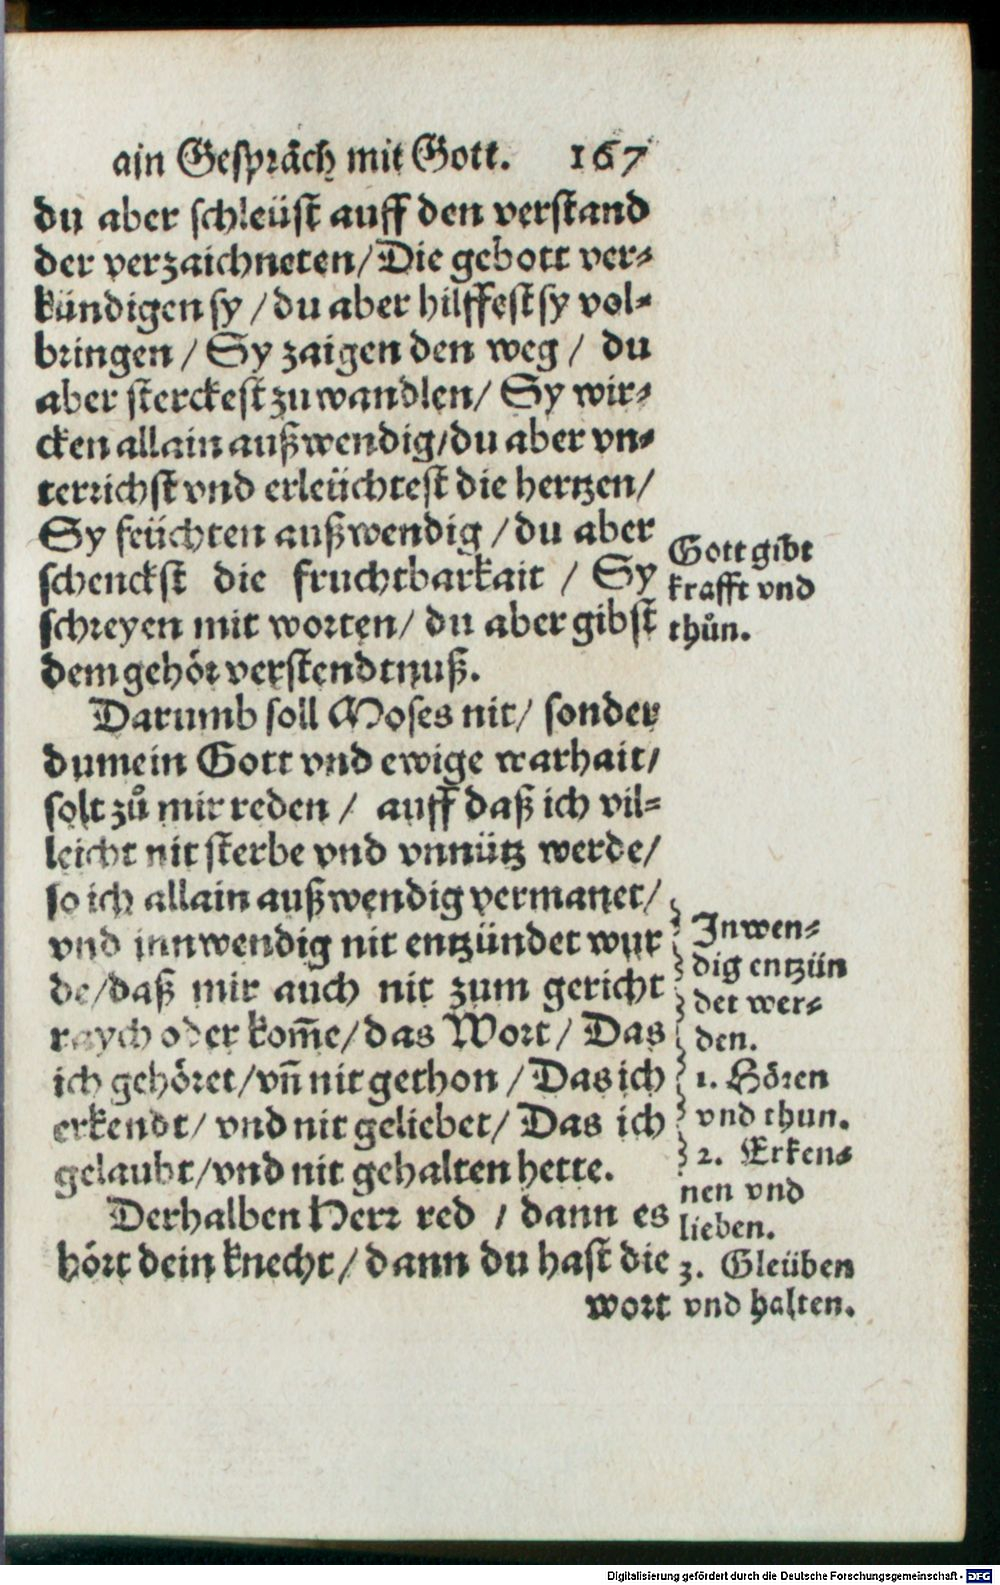 ain Gespräch mit Gott. 167
du aber schleüst auff den verstand
der verzaichneten/Die gebott ver-
kündigen sy /du aber hilffest sy vol-
bringen / Sy zaigen den weg / du
aber sterckest zu wandlen/ Sy wir-
cken allain außwendig/du aber vn-
terrichst vnd erleüchtest die hertzen/
Sy feüchten außwendig /du aber
schenckst die fruchtbarkait / Sy
schreyen mit worten/ du aber gibst
dem gehör verstendtnuß.
Gott gibt
krafft vnd
thůn.
Darumb soll Moses nit/ sonder
du mein Gott vnd ewige warhait/
solt zů mir reden / auff daß ich vil-
leicht nit sterbe vnd vnnütz werde/
so ich allain außwendig vermanet/
vnd innwendig nit entzündet wur
de/daß mir auch nit zum gericht
raych oder kom̄e/das Wort/ Das
ich gehöret/vn̄ nit gethon /Das ich
erkendt/ vnd nit geliebet/ Das ich
gelaubt/vnd nit gehalten hette.
Inwen-
dig entzün
det wer-
den.
1. Hören
vnd thun.
2. Erken-
nen vnd
lieben.
3. Gleüben
vnd halten.
Derhalben Herr red / dann es
hört dein knecht/dann du hast die
wort
Digitalisierung gefördert durch die Deutsche Forschungsgemeinschaft - DFG